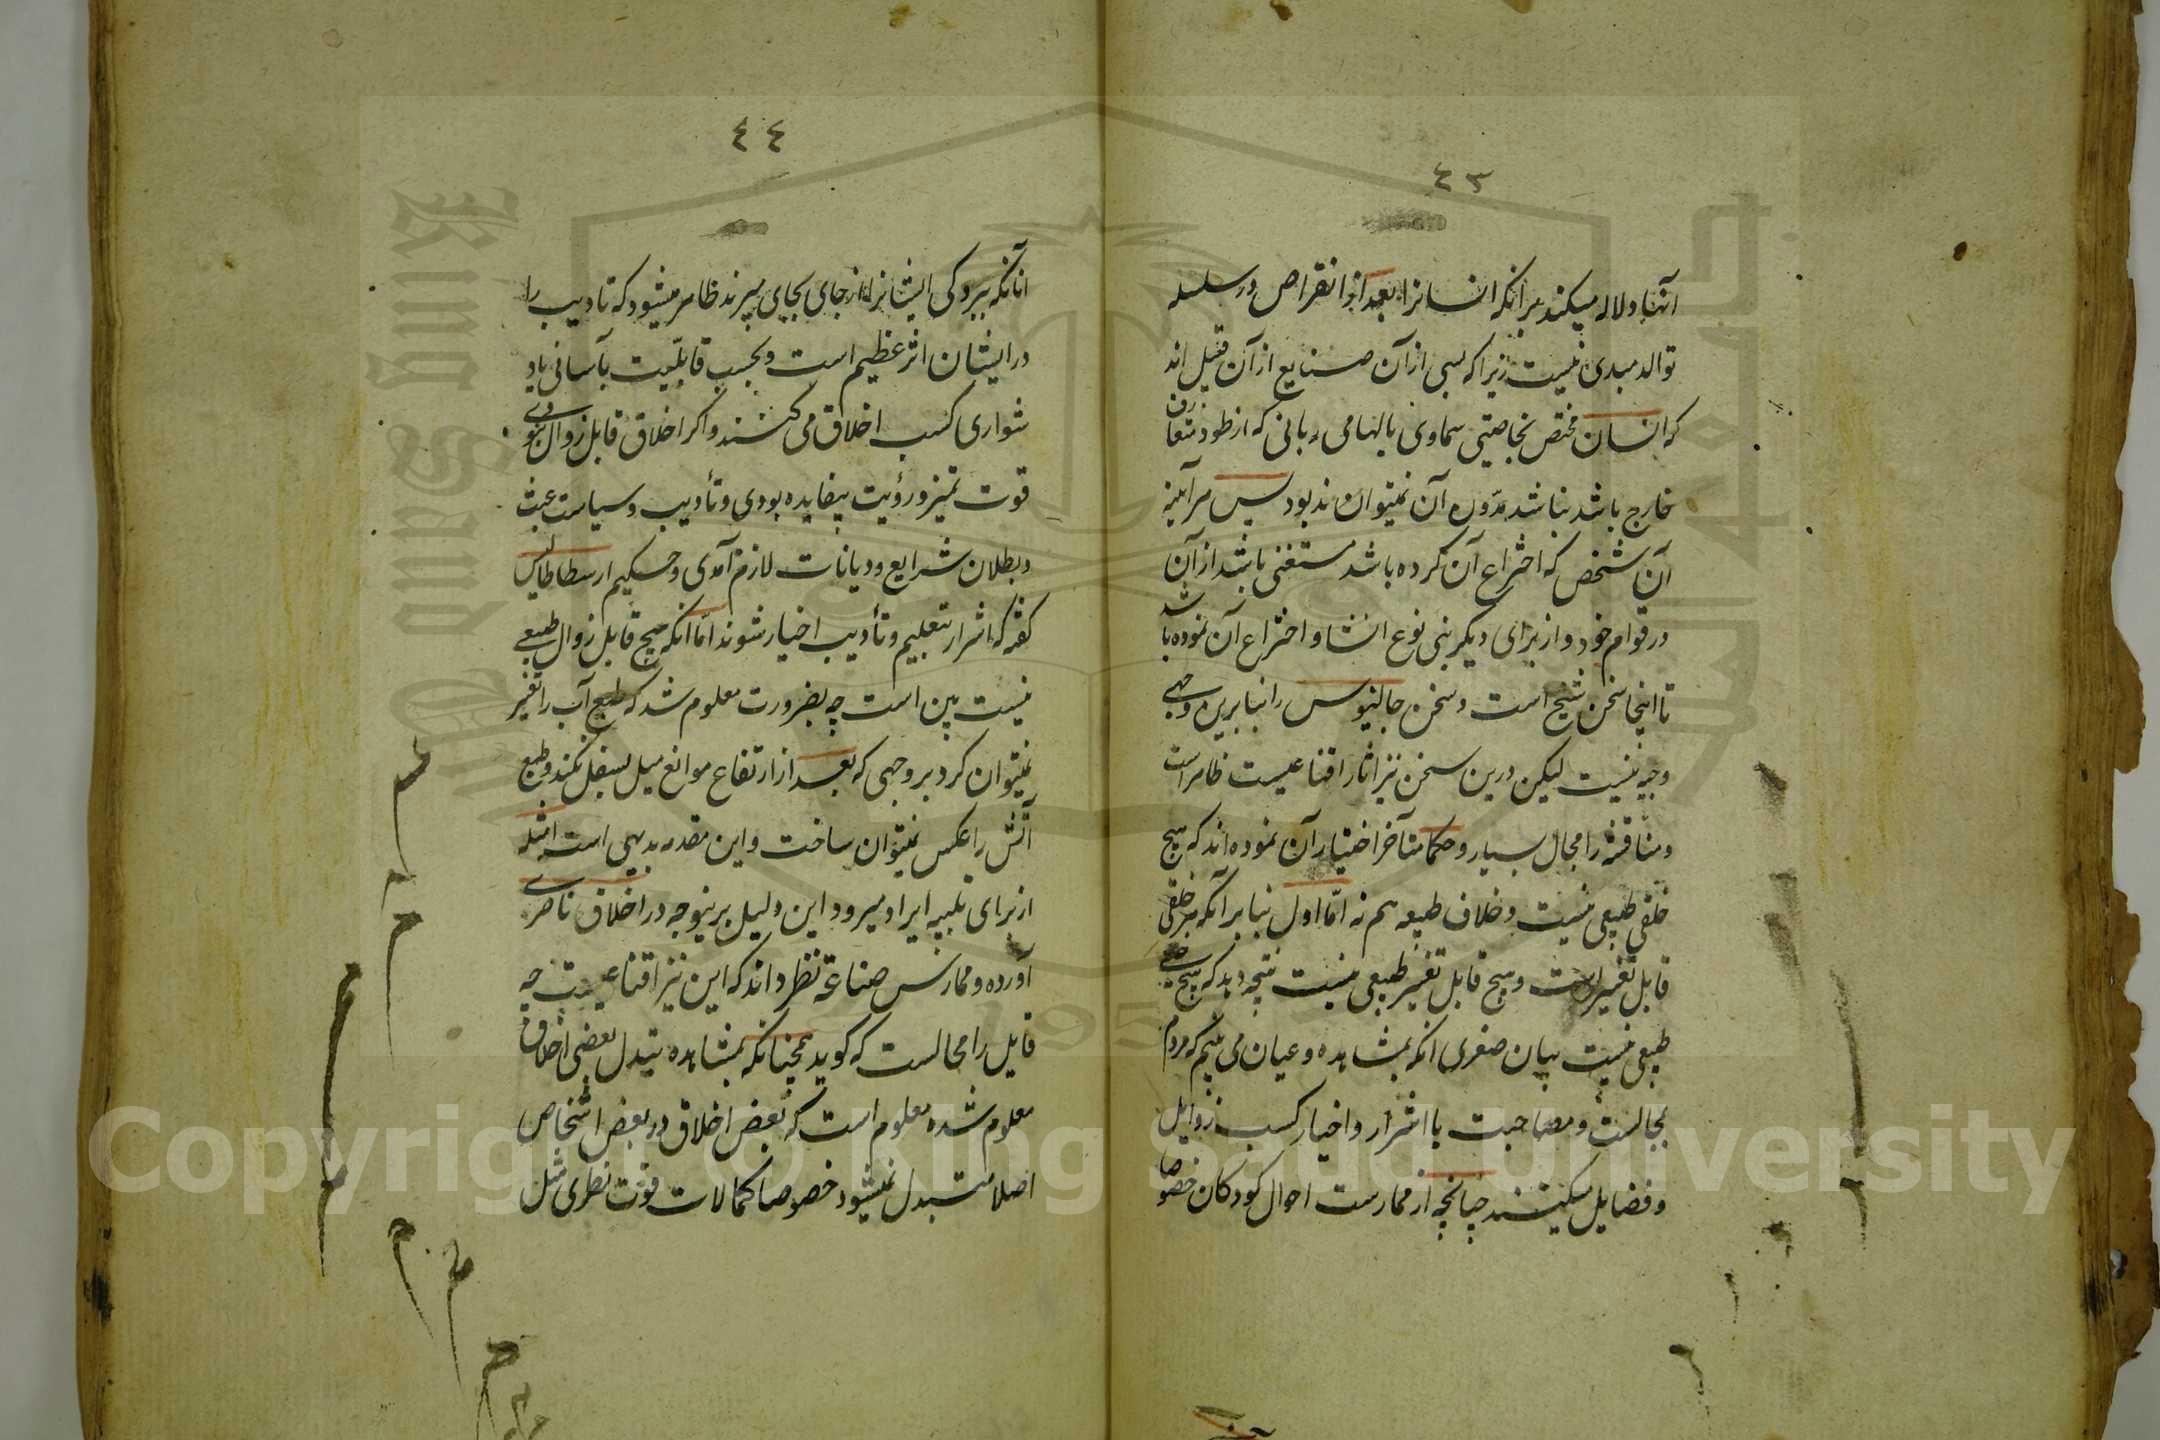 ٤٣
آنها دلاله میکند بر آنکه انسانرا بعد از انقراض در سلسله
توالد مبدئ نیست زیرا که بسی از آن صنایع از آن قبیل اند
که انسان مختص بخاصیتی سماوی یا الهامی ربانی که از طور متعارف
خارج باشد نباشد بدون آن نمیتواند بود پس هر آینه
آن شخص که اختراع آن کرده باشد مستغنی باشد از آن
در قوام خود و از برای دیگر بنی نوع انشا و اختراع آن نموده باشد
تا اینجا سخن شیخ است و سخن جالینوس را بنابرین وجهی
وجیه نیست لیکن درین سخن نیز اثار اقناعیست ظاهر است
و مناقشه را مجال بسیار و حکما متأخر اختیار آن نموده اند که هیچ
خلقی طبیعی نیست و خلاف طبیعه هم نه امّا اول بنابر آنکه هر خلقی
قابل تغییر است و هیچ قابل تغییر طبیعی نیست نتیجه دهد که هیچ خلقی
طبیعی نیست بیان صغری انکه بمشاهده و عیان می بینیم که مردم
بمجالست و مصاحبت با اشرار و اخیار کسب رذوایل
و فضایل میکنند چنانچه از ممارست احوال کودکان خصوصا
٤٤
انانکه ببردگی ایشانرا از جای بجای میبرند ظاهر میشود که تادیب را
در ایشان اثر عظیم است و بحسب قابلّیت بآسانی یا د
شواری کسب اخلاق می کنند و اگر اخلاق قابل زوال نبودی
قوت تمیز و رؤیت بیفایده بودی و تأدیب و سیاست عبث
و بطلان شرایع و دیانات لازم آمدی و حکیم ارسطاطالیس
گفته که اشرار بتعلیم و تأدیب اخیار شوند امّا انکه هیچ قابل زوال طبیعی
نیست بین است چه بضرورت معلوم شد که طبع آب را تغییر
نمیتوان کرد بر وجهی که بعد از ارتفاع موانع میل بسفل نکند و طبع
آتش را عکس نمیتوان ساخت و این مقدمه بدیهی است امثله
از برای تنبیه ایراد میرود این دلیل برینوجه در اخلاق ناصری
آورده و ممارس صناعة نظر داند که این نیز اقناعیست چه
قایل را مجالست که گوید همچنانکه بمشاهده تبدل بعضی اخلاق
معلوم شده معلوم است که بعض اخلاق در بعض اشخاص
اصلا متبدل نمیشود خصوصا کمالات قوت نظری مثل
Copyright © King Saud University